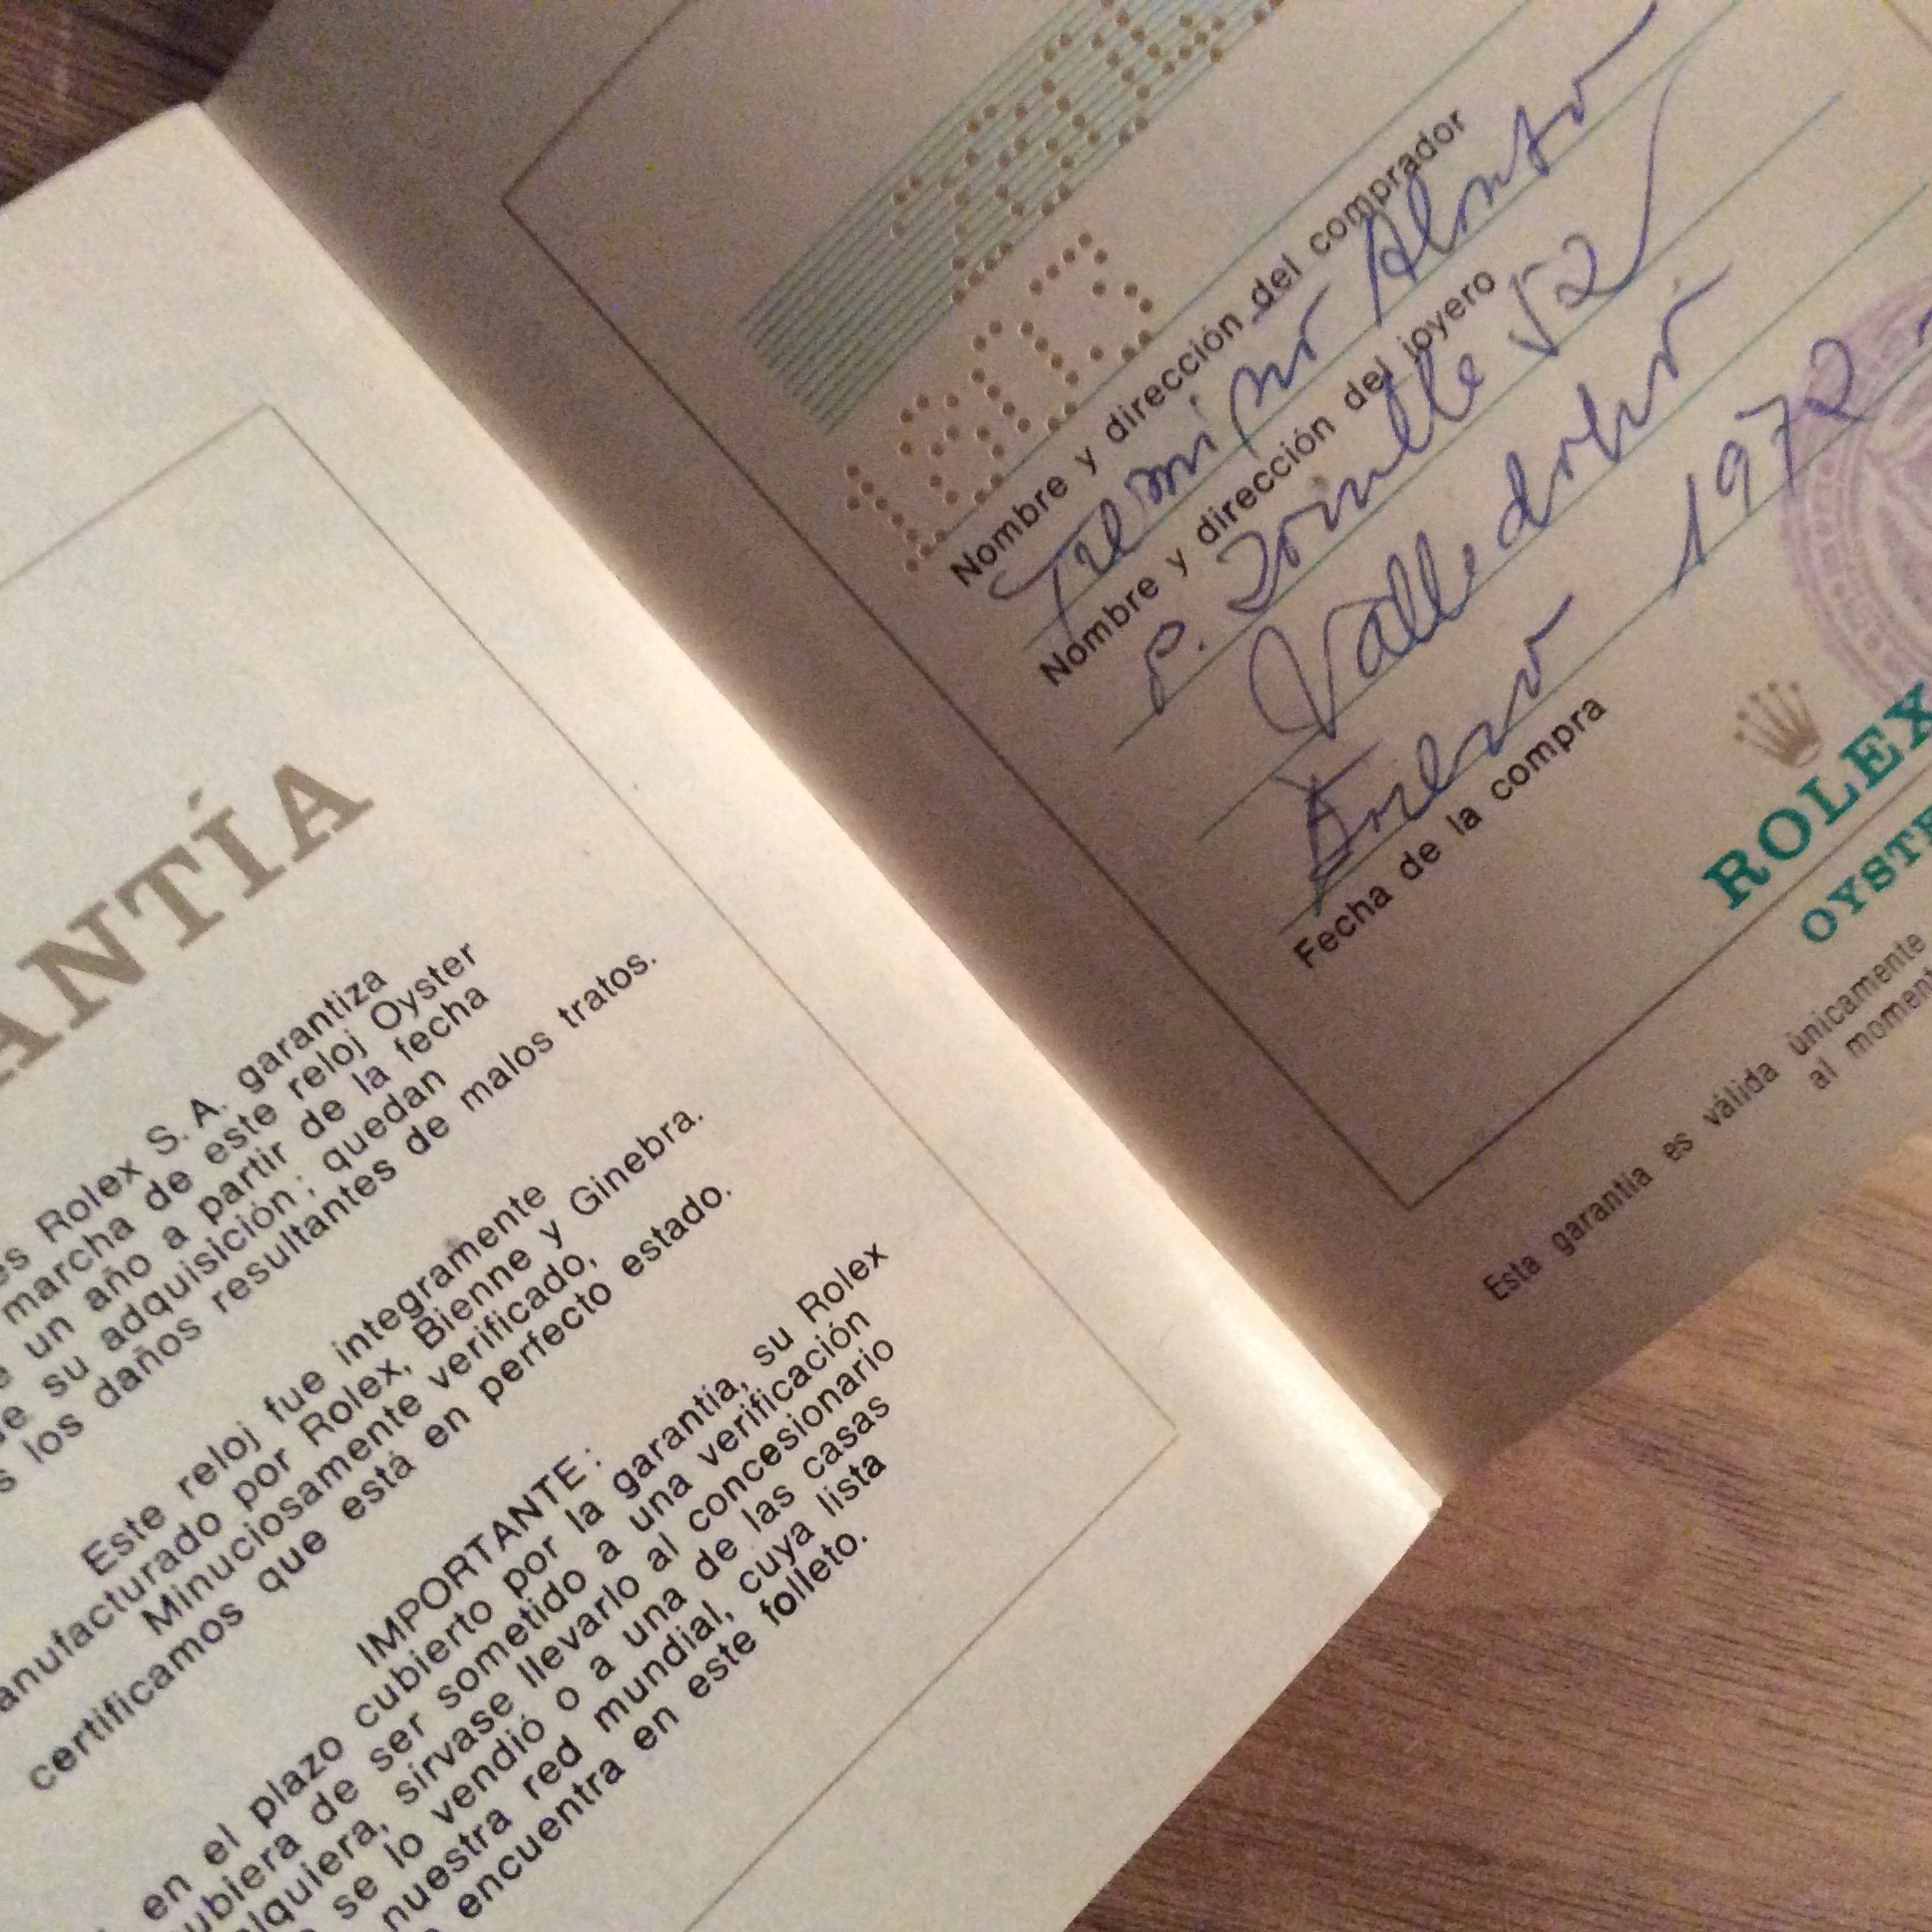 ANTÍA
es Rolex S. A. garantiza
marcha de este reloj Oyster
e un año a partir de la fecha
e su adquisición; quedan
s los daños resultantes de malos tratos.
Este reloj fue integramente
anufacturado por Rolex, Bienne y Ginebra.
Minuciosamente verificado,
certificamos que está en perfecto estado.
IMPORTANTE:
en el plazo cubierto por la garantía, su Rolex
ubiera de ser sometido a una verificación
alquiera, sirvase llevarlo al concesionario
se lo vendió o a una de las casas
nuestra red mundial, cuya lista
encuentra en este folleto.
Nombre y dirección del comprador
Alonso
Nombre y dirección del joyero
P. Zorrilla 52
Valladolid
Enero 1972
Fecha de la compra
ROLEX
OYSTE
Esta garantía es válida únicamente
al momen